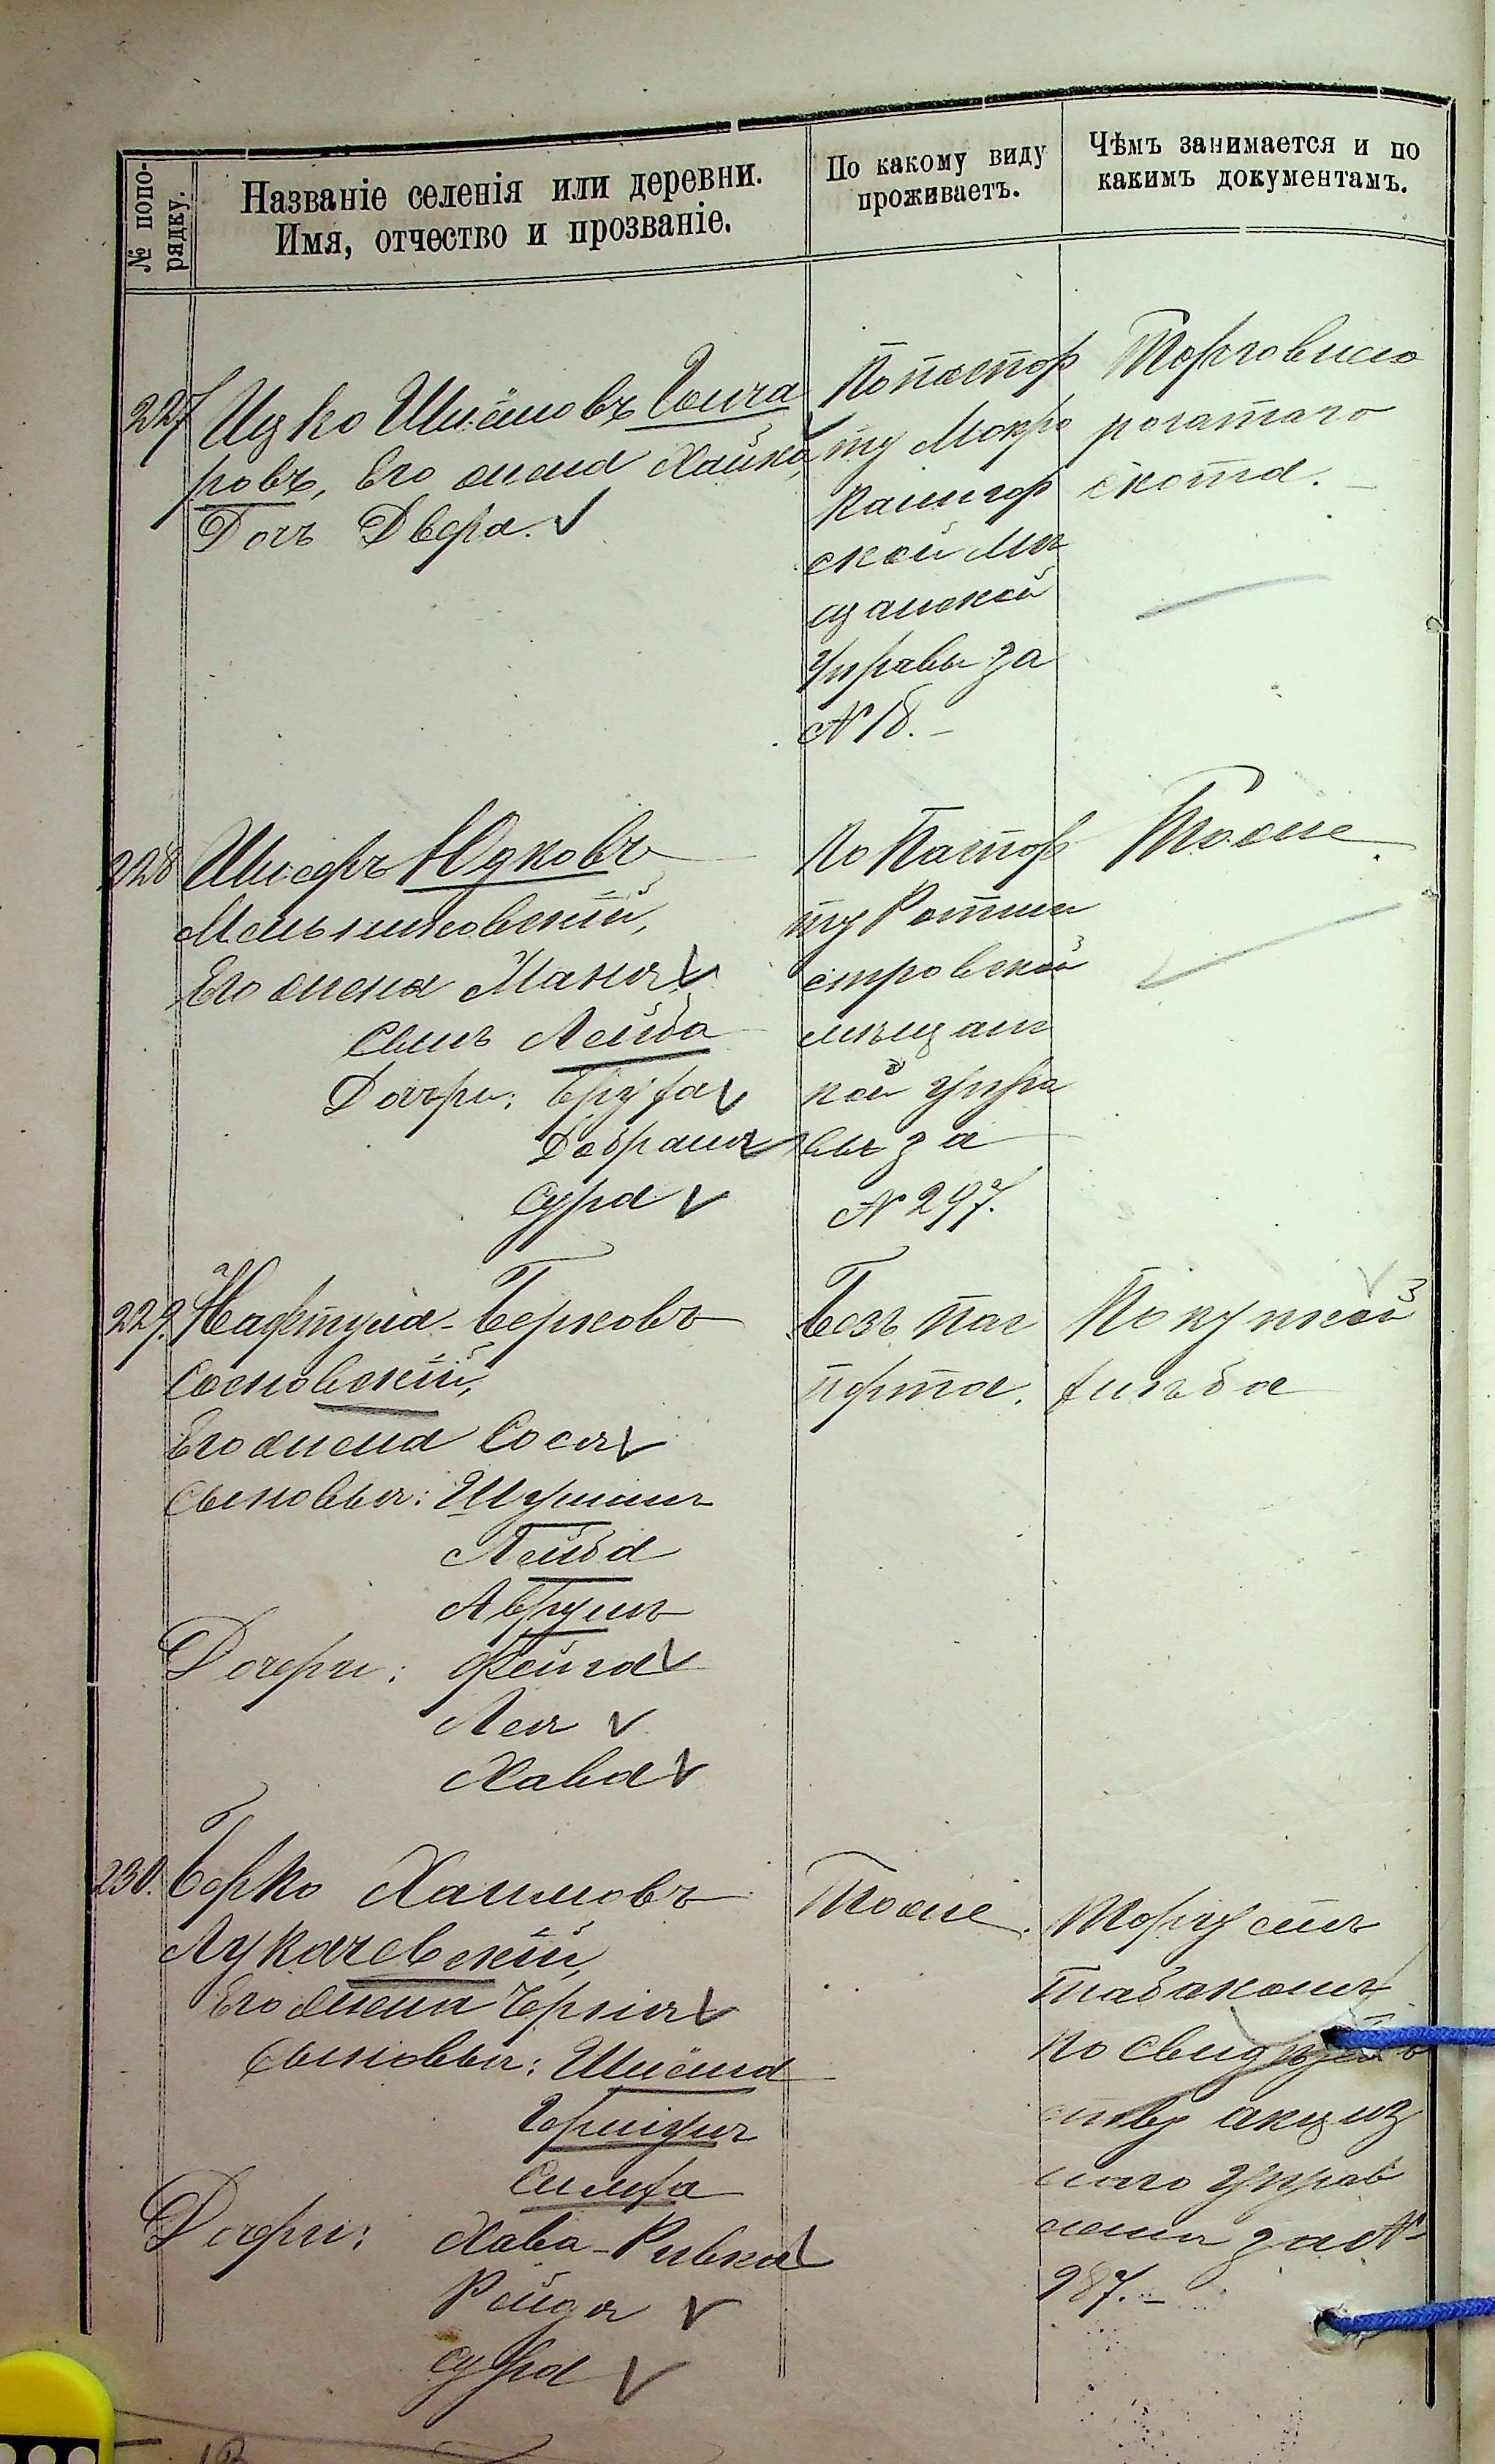 № попо-
рядку.
Названіе селенія или деревни.
Имя, отчество и прозваніе.
По какому виду
проживаетъ.
Чѣмъ занимается и по
какимъ документамъ.
227
Ицко Шлёмовъ Гонча
ровъ, Его жена Хайка,
Дочь Двера.
По паспор
ту Мокро
калигор
ской Мѣ
щанской
Управы за
№ 18.
Торговлею
рогатаго
скота.
228
Шмеръ Юдковъ
Мельниковскій,
Его жена Маня
Сынъ Лейба
Дочери: Бруха
Добрыня
Сура
По Паспор
ту Ротми
стровской
мѣщанс
кой Упра
вы за
№ 297.
Тоже
229.
Нафтула Берковъ
Сосновскій,
Его жена Сося
Сыновья: Шулимъ
Лейба
Аврумъ
Дочери: Фейга
Лея
Хава
Безъ пас
порта.
Покупкой
хлѣба
230.
Борко Хаимовъ
Лукачевскій,
Его жена Черня
Сыновья: Шлёма
Гершунъ
Симха
Дочери: Хава-Ривка
Рейзя
Сура
Тоже.
Торгуетъ
табакомъ
по свидѣтель
ству акциз
наго Управ
ленія за №
287.